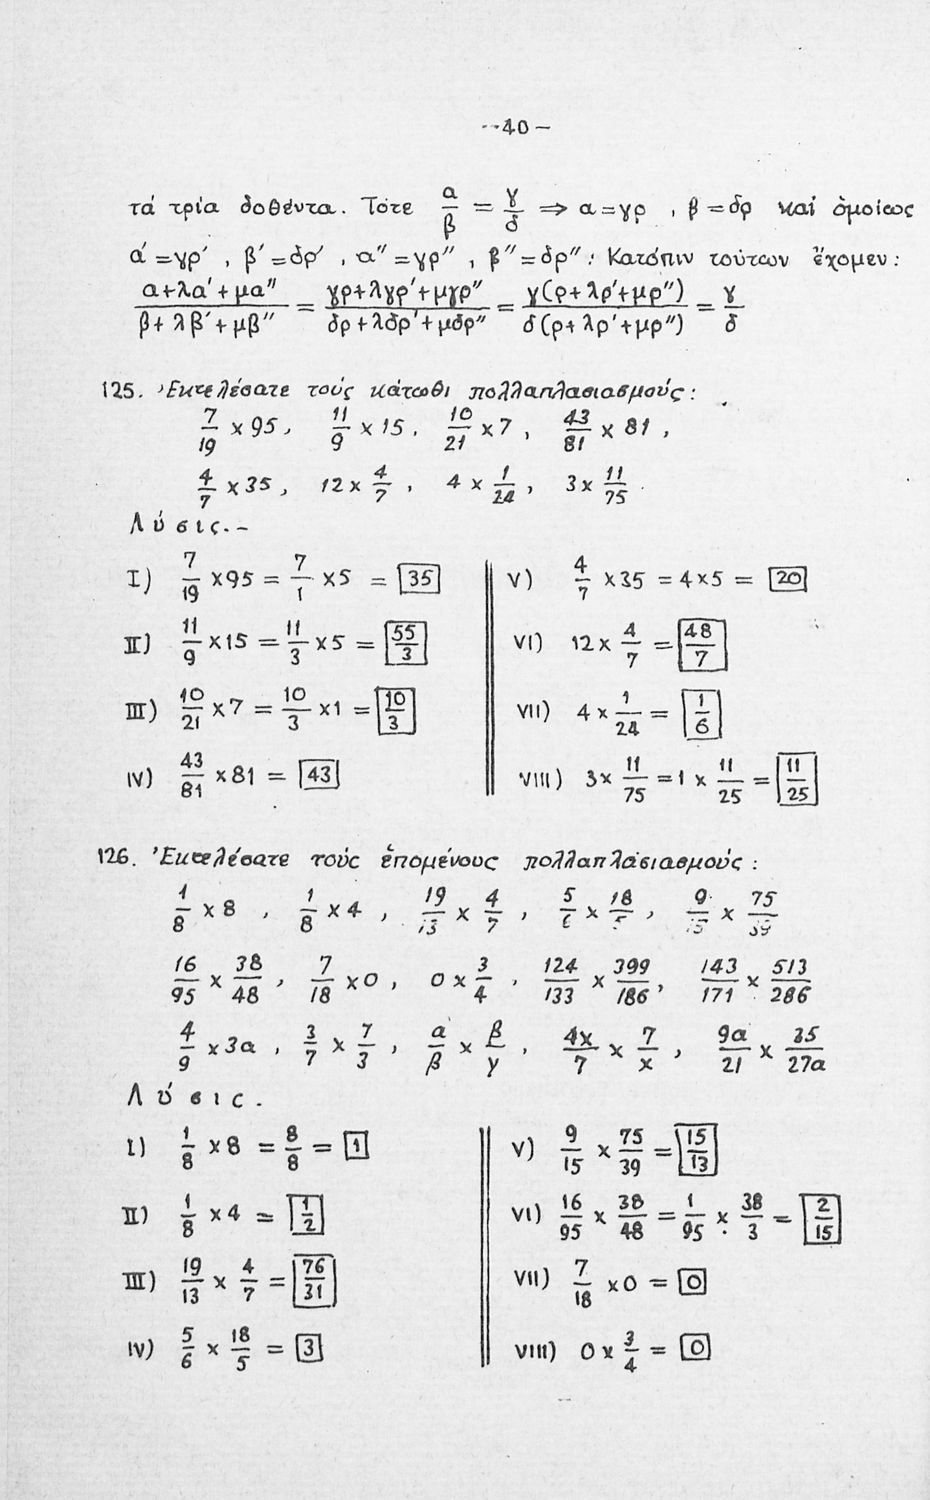 --40-
τά τρία δοθέντα. Τότε α/β = γ/δ ⇒ α=γρ , β=δρ καί ὁμοίως
α'=γρ' , β'=δρ' , α''=γρ'' , β''=δρ''. Κατόπιν τούτων ἔχομεν:
(α+λα'+μα'')/(β+λβ'+μβ'') = (γρ+λγρ'+μγρ'')/(δρ+λδρ'+μδρ'') = γ(ρ+λρ'+μρ'')/δ(ρ+λρ'+μρ'') = γ/δ
125. Ἐκτελέσατε τούς κάτωθι πολλαπλασιασμούς:
7/19 x 95, 11/9 x 15, 10/21 x 7, 43/81 x 81,
4/7 x 35, 12 x 4/7, 4 x 1/24, 3 x 11/75.
Λύσις.-
I) 7/19 x 95 = 7/1 x 5 = 35
II) 11/9 x 15 = 11/3 x 5 = 55/3
III) 10/21 x 7 = 10/3 x 1 = 10/3
IV) 43/81 x 81 = 43
V) 4/7 x 35 = 4x5 = 20
VI) 12 x 4/7 = 48/7
VII) 4 x 1/24 = 1/6
VIII) 3 x 11/75 = 1 x 11/25 = 11/25
126. Ἐκτελέσατε τούς ἑπομένους πολλαπλασιασμούς:
1/8 x 8 , 1/8 x 4 , 19/13 x 4/7 , 5/6 x 18/5 , 9/15 x 75/39
16/95 x 38/48 , 7/18 x 0 , 0 x 3/4 , 124/133 x 399/186 , 143/171 x 513/286
4/9 x 3α , 3/7 x 7/3 , α/β x β/γ , 4x/7 x 7/x , 9α/21 x 35/27α
Λύσις.
I) 1/8 x 8 = 8/8 = 1
II) 1/8 x 4 = 1/2
III) 19/13 x 4/7 = 76/31
IV) 5/6 x 18/5 = 3
V) 9/15 x 75/39 = 15/13
VI) 16/95 x 38/48 = 1/95 x 38/3 = 2/15
VII) 7/18 x 0 = 0
VIII) 0 x 3/4 = 0